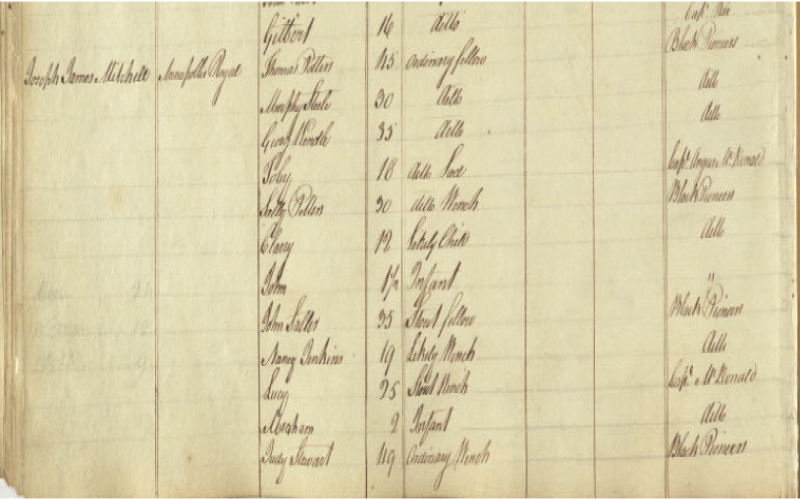 Gilbert 16 ditto Capt.
Joseph James Mitchell Annapolis Royal Thomas Peters 45 ordinary fellow Black Pioneers
Murphy Steele 30 ditto ditto
35 ditto ditto
Toby 18 ditto Lad Capt. Angus McDonald
Sally Peters 30 ditto Wench Black Pioneers
Clairy 12 Likely Child ditto
John 1½ Infant "
John Salter 35 Stout fellow Black Pioneers
Nancy Jenkins 19 Likely Wench ditto
Lucy 25 Stout Wench Capt. McDonald
Abraham 2 Infant ditto
Judy Stewart 49 ordinary Wench Black Pioneers